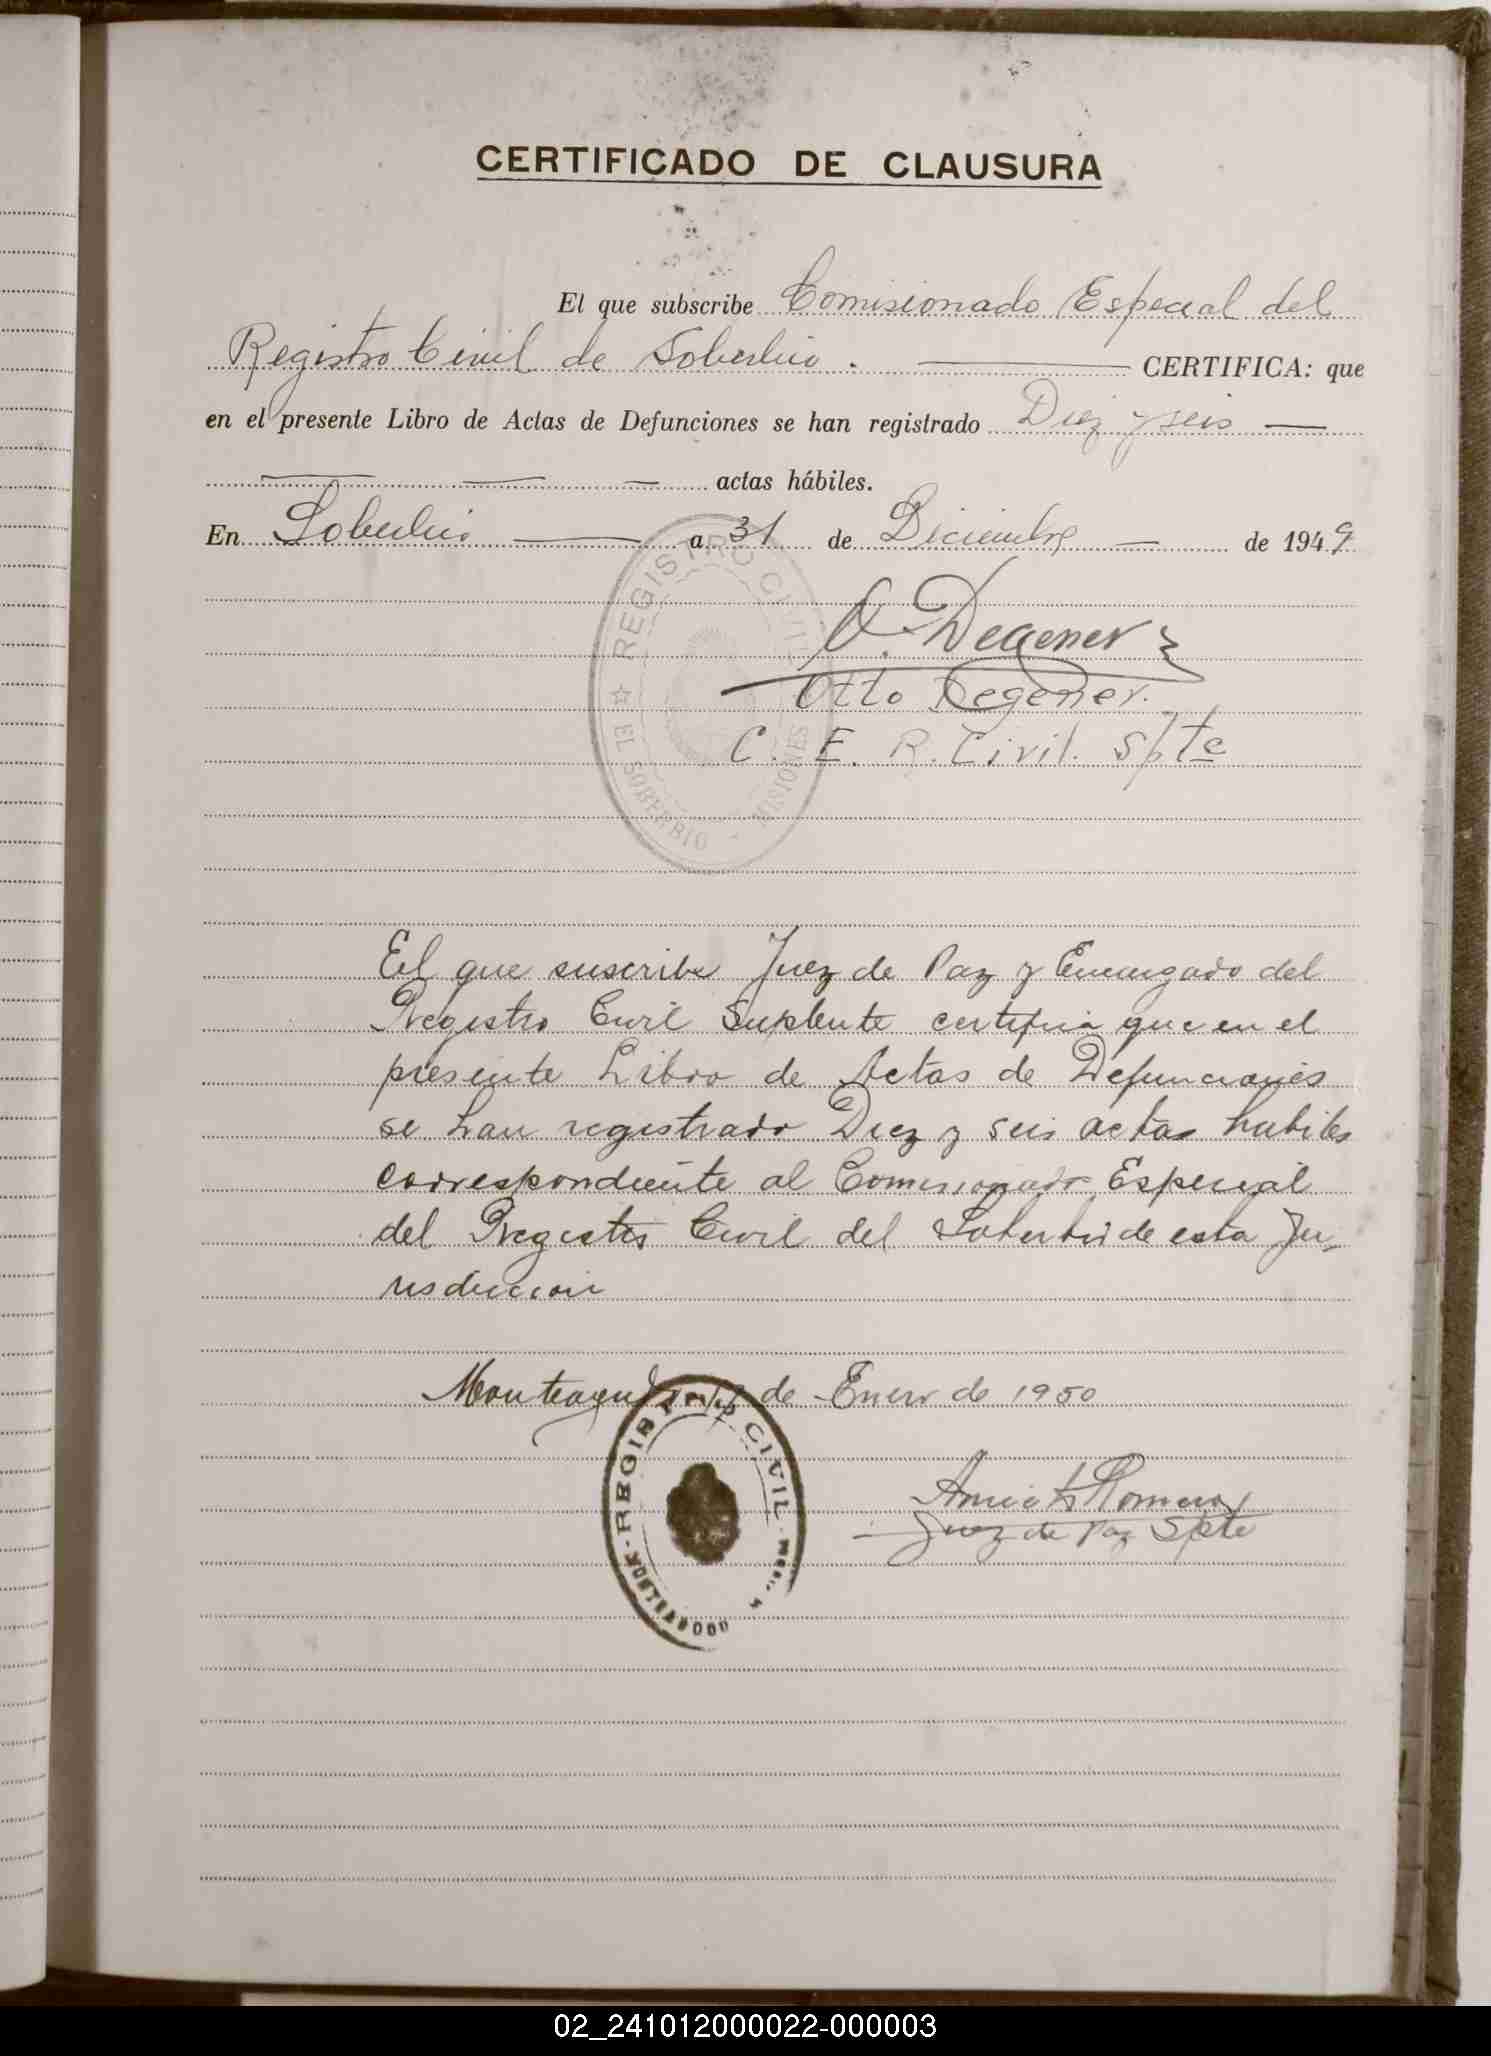 CERTIFICADO DE CLAUSURA
El que subscribe Comisionado Especial del
Registro Civil de Soberbio. CERTIFICA: que
en el presente Libro de Actas de Defunciones se han registrado Diez y seis
actas hábiles.
En Soberbio a 31 de Diciembre de 1949
O. Degener
Otto Degener.
C. E. R. Civil. Spte
REGISTRO CIVIL
EL SOBERBIO - MISIONES
El que suscribe Juez de Paz y Encargado del
Registro Civil Suplente certifica que en el
presente Libro de Actas de Defunciones
se han registrado Diez y seis actas habiles
correspondiente al Comisionado Especial
del Registro Civil del Soberbio de esta Ju-
risdiccion
Monteagudo de Enero de 1950
REGISTRO CIVIL
Romero
Juez de Paz Spte
02_241012000022-000003